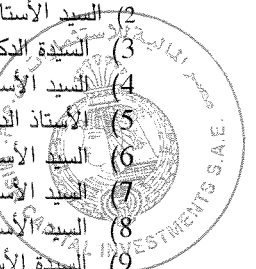 2) السيد الأستا
3) السيدة الدك
4) السيد الأس
5) الأستاذ الد
6) السيد الأس
7) السيد الأس
8) السيد الأس
9) السيدة الأس
مصر المالية للاستثمارات
CAPITAL INVESTMENTS S.A.E.